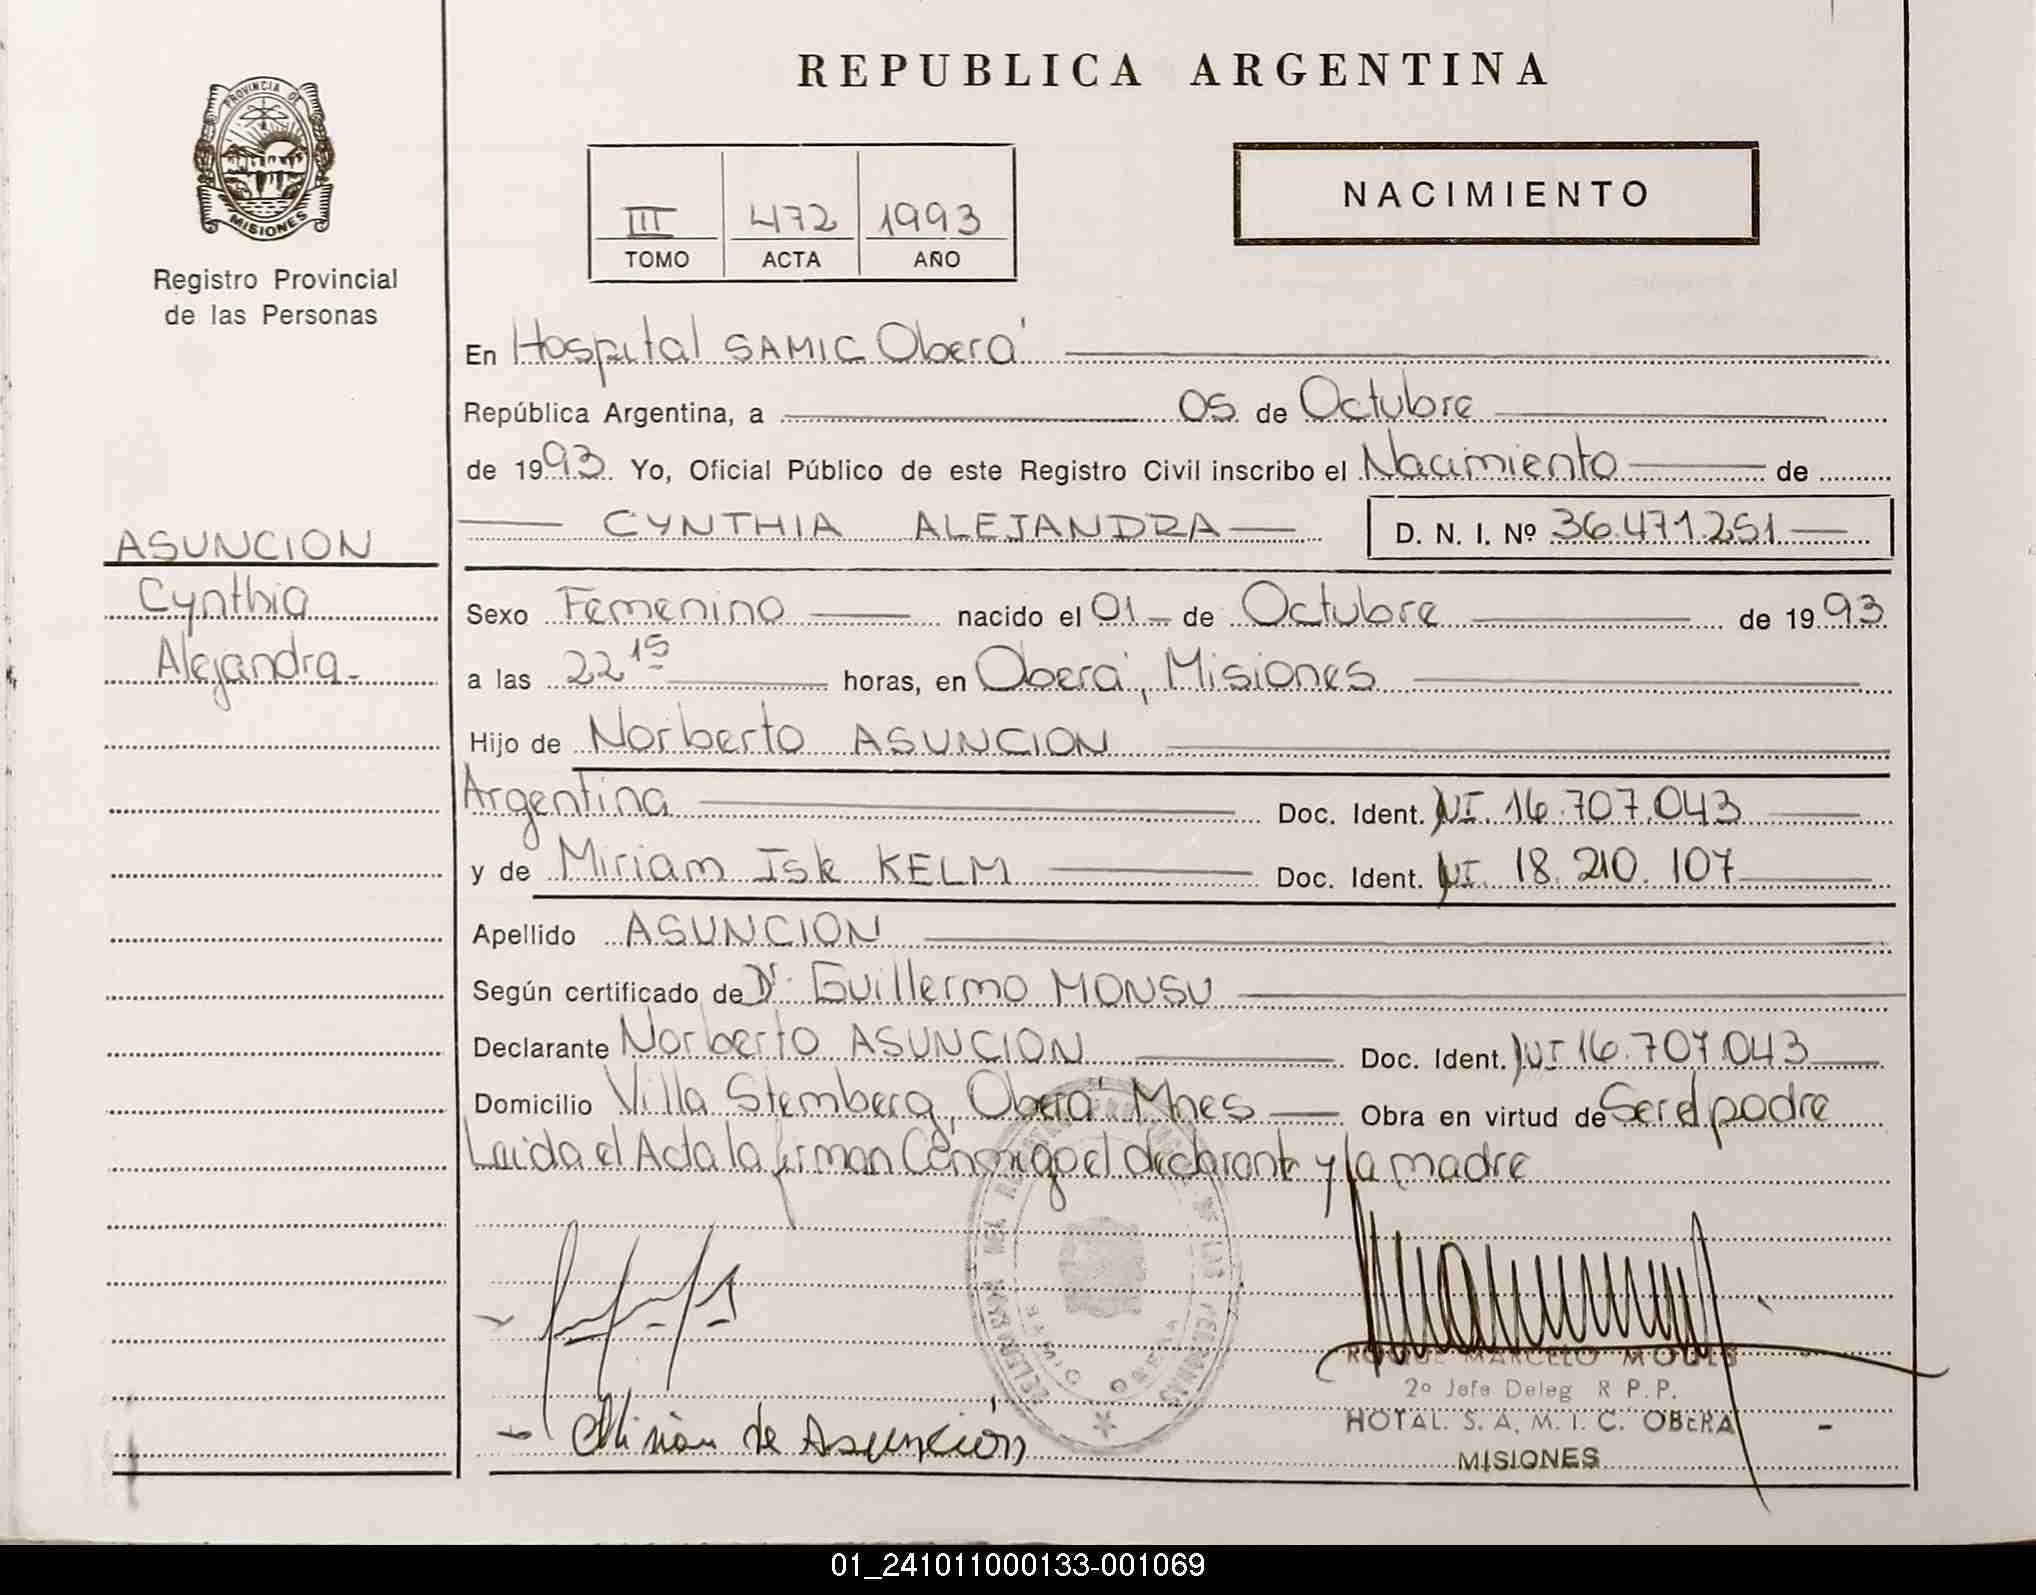 REPUBLICA ARGENTINA
PROVINCIA DE
MISIONES
Registro Provincial
de las Personas
III 472 1993
TOMO ACTA AÑO
NACIMIENTO
En Hospital SAMIC Oberá
República Argentina, a 05 de Octubre
de 1993. Yo, Oficial Público de este Registro Civil inscribo el Nacimiento de
CYNTHIA ALEJANDRA D. N. I. Nº 36.471.251
ASUNCION
Cynthia
Alejandra
Sexo Femenino nacido el 01 de Octubre de 1993
a las 22 15 horas, en Oberá, Misiones
Hijo de Norberto ASUNCION
Argentina Doc. Ident. NI. 16.707.043
y de Miriam KELM Doc. Ident. NI. 18.210.107
Apellido ASUNCION
Según certificado de Dr. Guillermo MONSU
Declarante Norberto ASUNCION Doc. Ident. NI 16.707.043
Domicilio Villa Stemberg, Oberá Mnes Obra en virtud de Ser el padre
Leida el Acta la firman Conmigo el declarante y la madre
de Asunción
MARCELO
2º Jefe Deleg R P.P.
HOTAL. S. A. M. I. C. OBERA
MISIONES
01_241011000133-001069